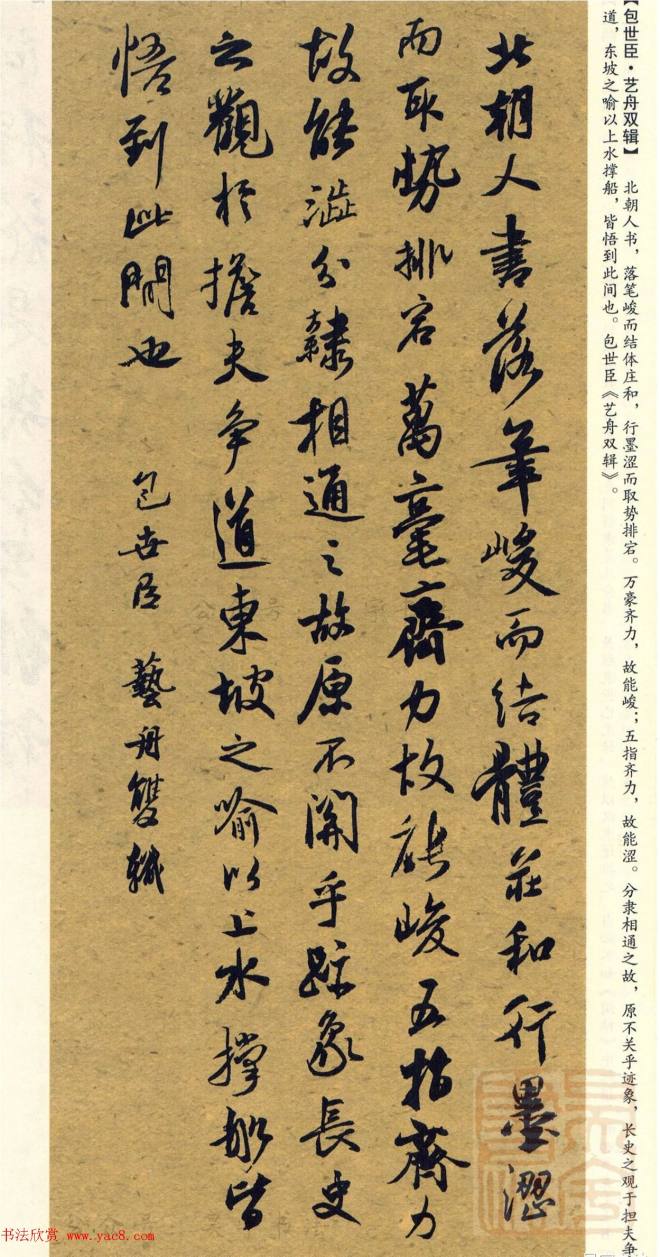 【包世臣·艺舟双辑】 北朝人书，落笔峻而结体庄和，行墨涩而取势排宕。万豪齐力，故能峻；五指齐力，故能涩。分隶相通之故，原不关乎迹象，长史之观于担夫争
道，东坡之喻以上水撑船，皆悟到此间也。包世臣《艺舟双辑》。
北朝人書落筆峻而结體莊和行墨澀
而取勢排宕萬毫齊力故能峻五指齊力
故能澁分隸相通之故原不関乎跡象長史
之觀於擔夫争道東坡之喻以上水撑船皆
悟到此間也 包世臣 藝舟雙輯
书法欣赏 www.yac8.com